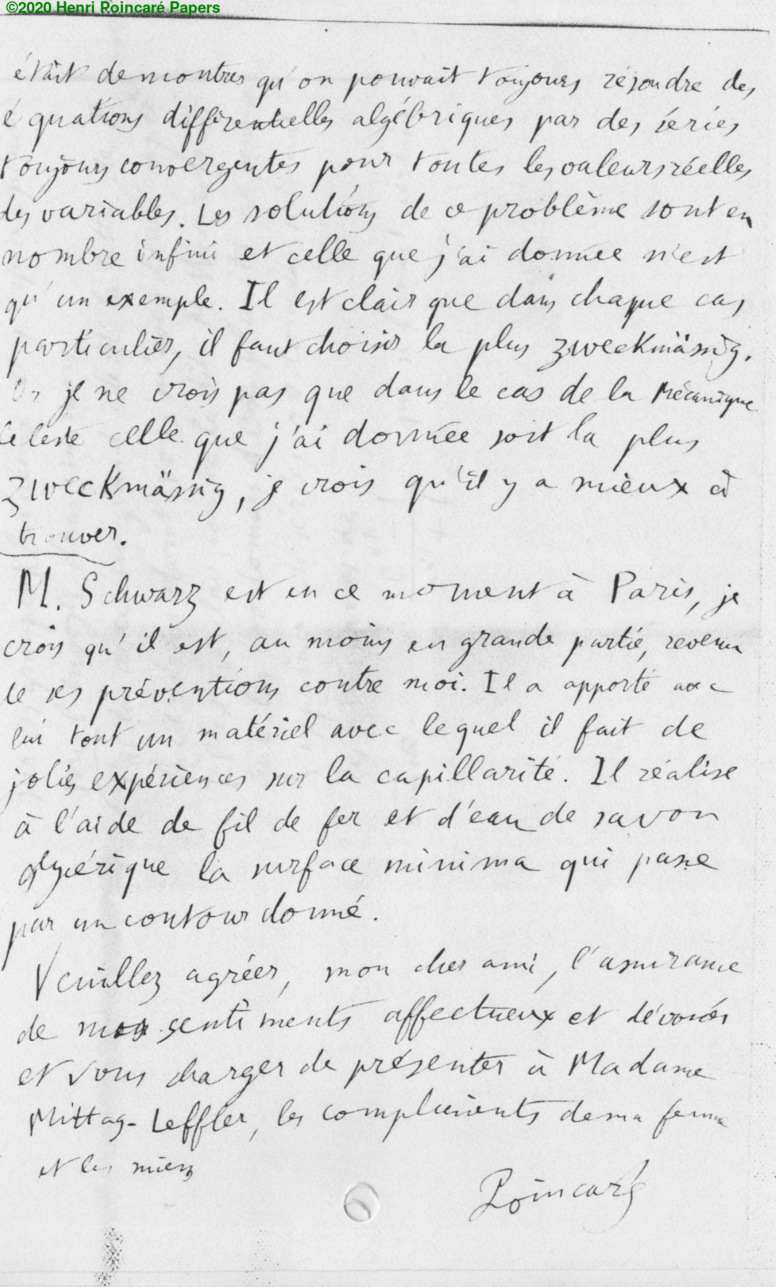 ©2020 Henri Poincaré Papers
était de montrer qu'on pouvait toujours résoudre des
équations différentielles algébriques par des séries
toujours convergentes pour toutes les valeurs réelles
des variables. Les solutions de ce problème sont en
nombre infini et celle que j'ai donnée n'est
qu'un exemple. Il est clair que dans chaque cas
particulier, il faut choisir la plus zweckmässig.
Or je ne crois pas que dans le cas de la Mécanique
Céleste celle que j'ai donnée soit la plus
zweckmässig, je crois qu'il y a mieux à
trouver.
M. Schwarz est en ce moment à Paris, je
crois qu'il est, au moins en grande partie, revenu
de ses préventions contre moi. Il a apporté avec
lui tout un matériel avec lequel il fait de
jolies expériences sur la capillarité. Il réalise
à l'aide de fil de fer et d'eau de savon
glycérique la surface minima qui passe
par un contour donné.
Veuillez agréer, mon cher ami, l'assurance
de mes sentiments affectueux et dévoués
et vous charger de présenter à Madame
Mittag-Leffler, les compliments de ma femme
et les miens
Poincaré